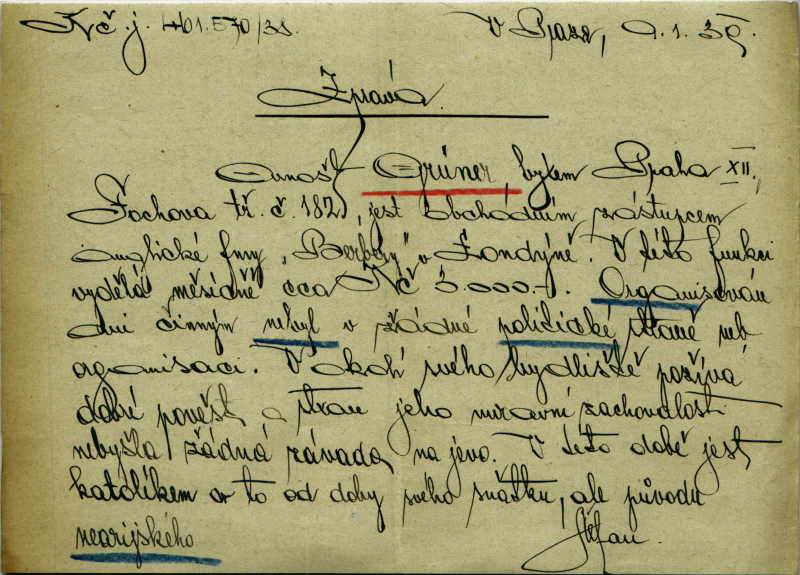 Kč.j. 401.570/38 V Praze, 9.1.39.
Zpráva.
Arnošt Grüner, bytem Praha XII.,
Fochova tř. č. 182, jest obchodním zástupcem
anglické firmy „ " v Londýně. V této funkci
vydělá měsíčně cca Kč 3.000.-. Organisován
ani činným nebyl v žádné politické straně neb
organisaci. V okolí svého bydliště požívá
dobré pověsti a stran jeho mravní zachovalosti
nevyšla žádná závada na jevo. V této době jest
katolíkem a to od doby svého sňatku, ale původu
nearijského.
Štefan.